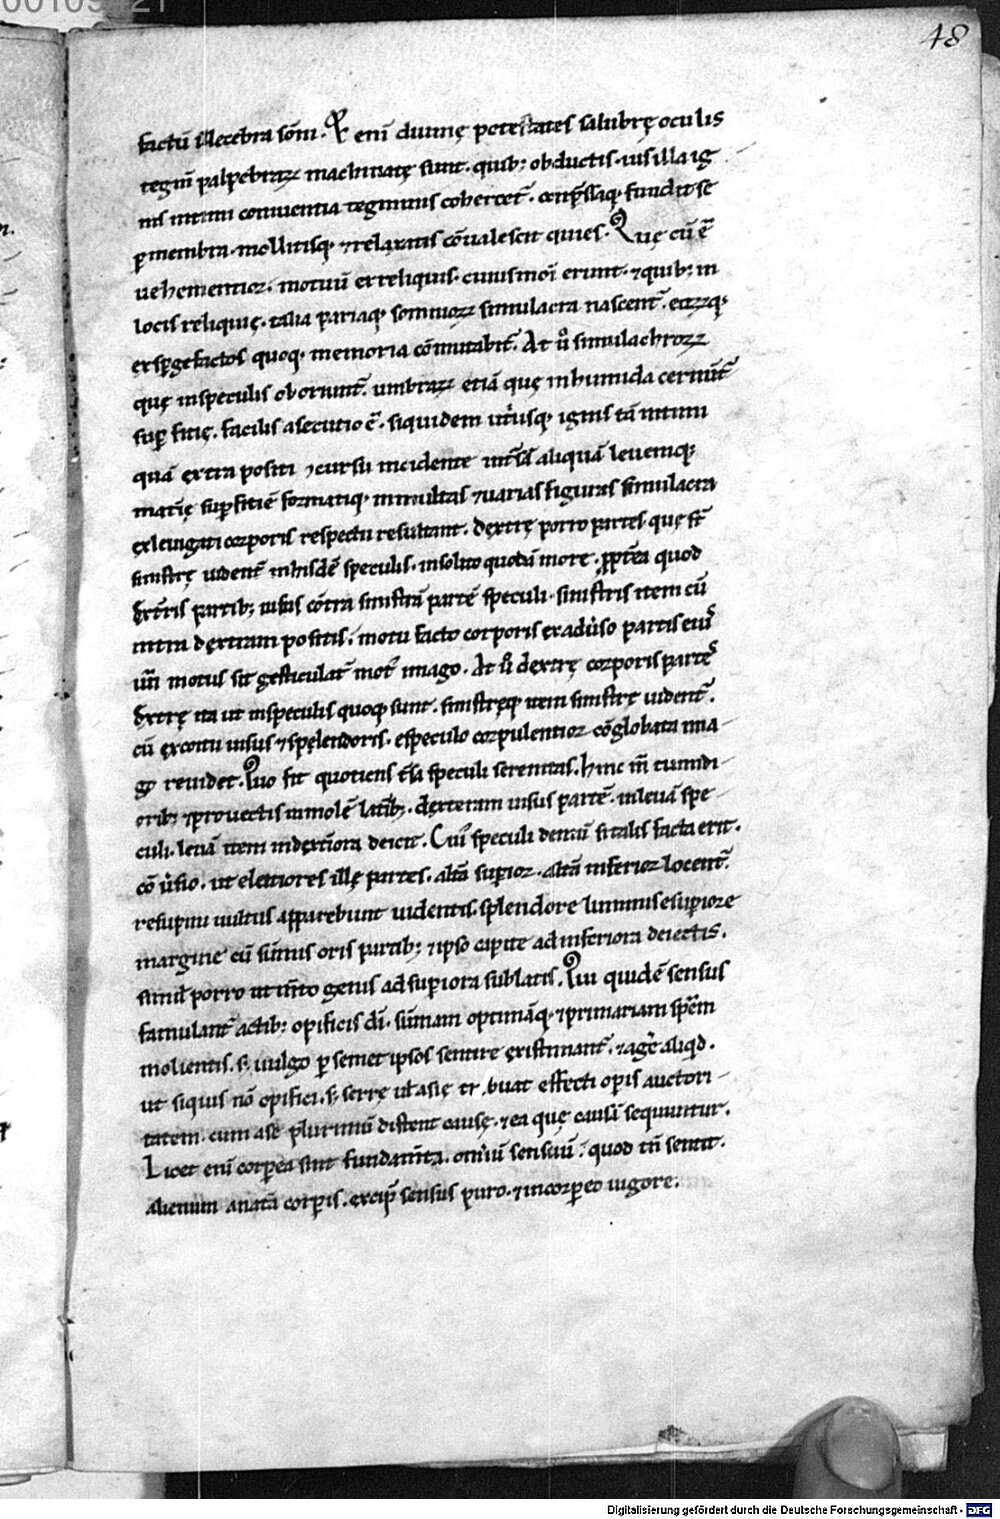 00109421
48
factū illecebra som̄i. Q̄ eni diuinę potestates salubrę oculis
tegm̄ palpebraꝝ machinatę sunt. quib; obductis. uis illa ig
nis intimi conniuentia tegminis cohercet̄. conp̄ssaq; fundit se
ꝑ membra. mollitisq; ⁊ relaxatis cōualescit quies. Quę cū ē
uehementior. motuū et reliquis. cuiusmoi erunt. ⁊ quib; in
locis reliquię. talia pariaq; somnioꝝ simulacra nascent̄. eaꝝq;
exꝑgefactos quoq; memoria cōmitabit̄. At ů simulachroꝝ
quę in speculis oboriunt̄. umbraꝝ etiā quę in humida cernūt̄
suꝑficię. facilis asecutio ē. siquidem utriusq; ignis tā intimi
quā extra positi cursu incidente aliquā leuemq;
matię suꝑficiē formatiq; in multas ⁊ uarias figuras simulacra
ex leuigati corporis respectu resultant. dextrę porro partes quę st̄
sinistrę uident̄ in hisdē speculis. insolito quodā more. ꝓpt̄ea quod
dext̄ris partib; uisus cōtra sinistrā partē speculi. sinistris item cū
intra dextram positis. motu facto corporis ex aduẽso partis eiuˢ
un̄ motus sit gesticulat̄ imago. At ů dextrę corporis partęˢ
dextrę ita ut in speculis quoq; sunt. sinistręq; item sinistrę uident̄.
cū ex coitu uisus ⁊ splendoris. e speculo corpulentior cōglobata ima-
go reuidet. Quo fit quotiens speculi serenitas. hinc in̄ tumidi-
orib; ⁊ prouectis in molē latib;. dexteram uisus partē. in leuā spe-
culi. leuā item in dextiora deicit. Cuiˢ speculi demū si talis facta erit.
cōůsio. ut elatiores illę partes. altā suꝑior. altā inferior locent̄.
resupini uultus apparebunt uidentis. splendore luminis e suꝑiore
margine cū sūmis oris partib; ⁊ ipso capite ad inferiora deiectis.
simil' porro ut mt̄o genis ad suꝑiora sublatis. Qui quidē sensus
famulant̄ actib; opificis dī. sūmam optimāq; ⁊ primariam spēm
molientis. s; uulgo ꝑ semet ipsos sentire existimant̄. ⁊ agẽ aliqd.
ut siquis nō opifici. s; serrę ut asię buat effecti opis auctori-
tatem. cum a se plurimū distent causę. ⁊ ea quę causā sequuntur.
Licet enī corꝑea sint fundam̄ta. omīū sensuū. quod tn̄ sentit.
alienum a natā corꝑis. sensus puro. ⁊ incorꝑeo uigore.
Digitalisierung gefördert durch die Deutsche Forschungsgemeinschaft - DFG